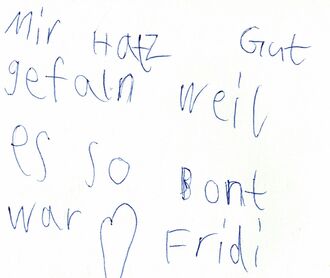 Mir HatZ Gut
gefaln weil
es so Bont
war Fridi